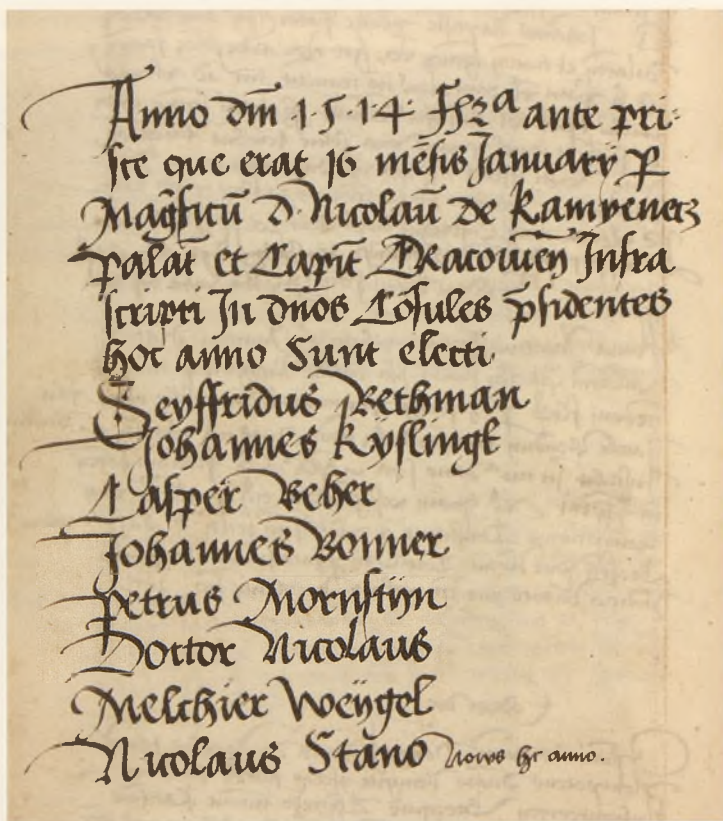 Anno dm̄ ·1·5·1·4· ffꝫ2ᵃ ante pri-
sce que erat 16 mēsis Januarÿ ꝑ
Magᷓficū d Nicolaū de Kamyenecz
palat̄ et Capit̄ Cracouieñ Infra
scripti In dn̄os Cōsules p̄sidentes
hoc anno Sunt electi
Seyffridus Bethman
Johannes Kyslingk
Casper Beher
Johannes Bonner
Petrus Mornstÿn
Doctor Nicolaus
Melchier Weÿgel
Nicolaus Stano Nowꝰ hc anno.